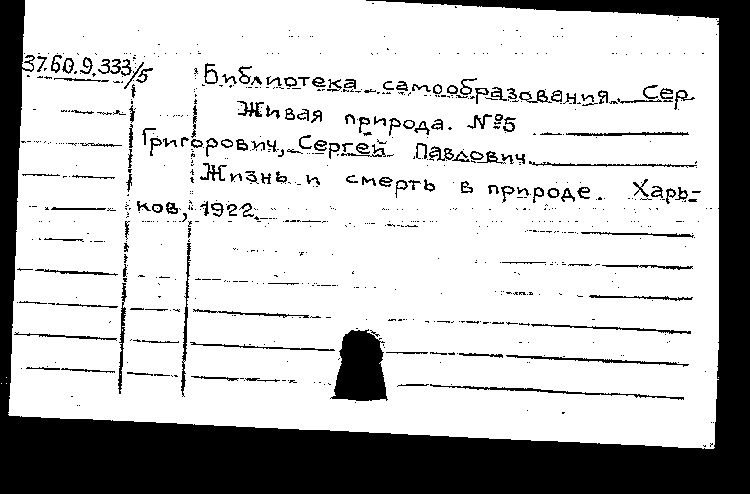 37.60.9.333/5 Библиотека самообразования. Сер
Живая природа. №5
Григорович, Сергей Павлович.
Жизнь и смерть в природе. Харь=
ков, 1922.